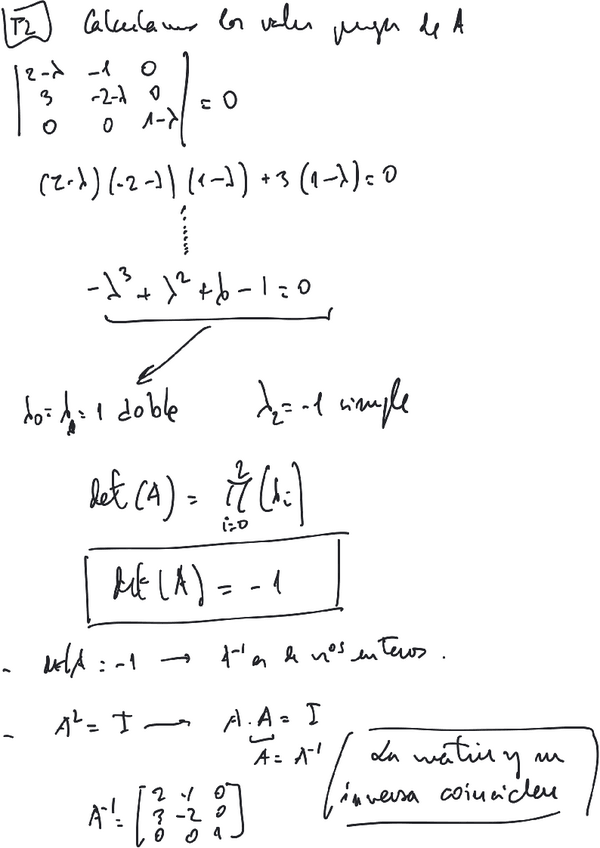 P2 Calculamos los valores propios de A
| 2-λ -1 0 |
| 3 -2-λ 0 | = 0
| 0 0 1-λ |
(2-λ)(-2-λ)(1-λ) + 3(1-λ) = 0
-λ³ + λ² + λ - 1 = 0
λ₀ = λ₁ = 1 doble λ₂ = -1 simple
det(A) = ∏_{i=0}^{2} (λi)
det(A) = -1
- det A = -1 → A⁻¹ es de nºs enteros.
- A² = I → A.A = I
A = A⁻¹
La matriz y su
inversa coinciden
A⁻¹ = [ 2 -1 0
3 -2 0
0 0 1 ]